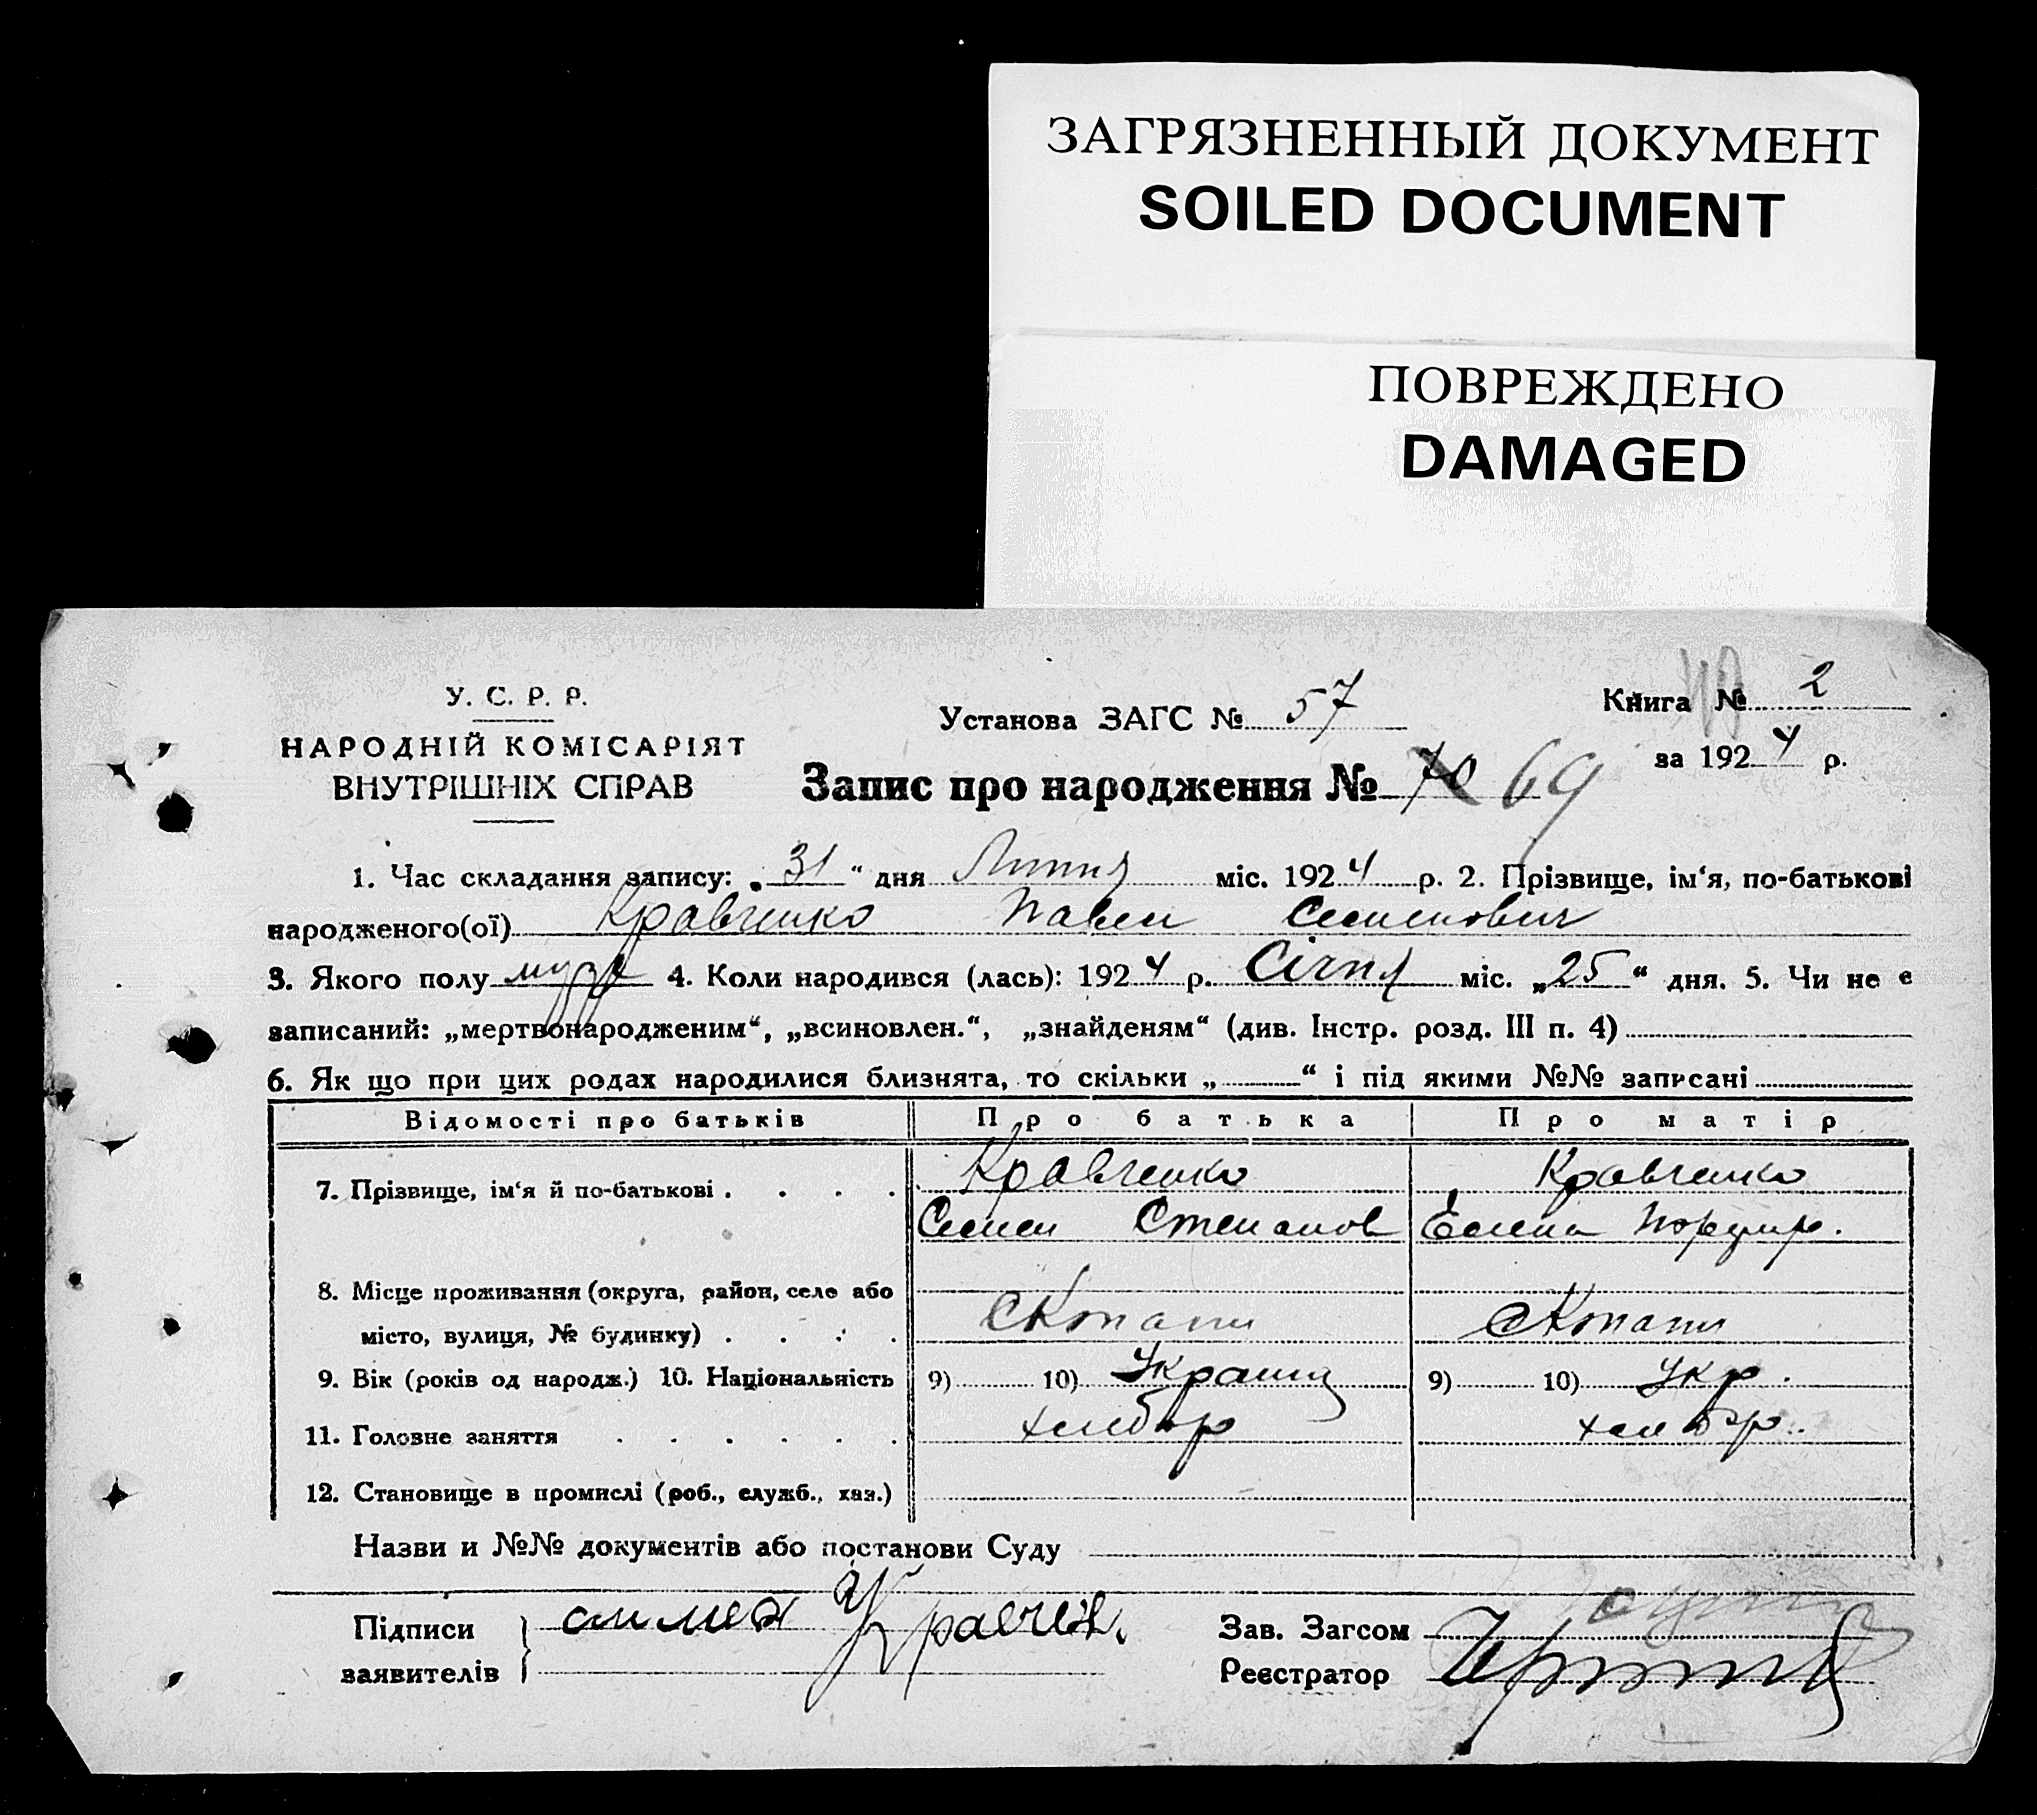 ЗАГРЯЗНЕННЫЙ ДОКУМЕНТ
SOILED DOCUMENT
ПОВРЕЖДЕНО
DAMAGED
У. С. Р. Р.
НАРОДНІЙ КОМІСАРІЯТ
ВНУТРІШНІХ СПРАВ
Установа ЗАГС № 57
Книга № 2
за 1924 р.
Запис про народження № 70 69
1. Час складання запису: „31“ дня Липня міс. 1924 р. 2. Прізвище, ім‘я, по-батькові
народженого(ої) Кравченко Павел Семенович
3. Якого полу муж 4. Коли народився (лась): 1924 р. Січня міс. „25“ дня. 5. Чи не є
записаний: „мертвонародженим“, „всиновлен.“, „знайденям“ (див. Інстр. розд. III п. 4)
6. Як що при цих родах народилися близнята, то скільки „ “ і під якими №№ записані
Відомості про батьків Про батька Про матір
7. Прізвище, ім‘я й по-батькові Кравченко Кравченко
Семен Степанов Елена Порфир.
8. Місце проживання (округа, район, село або
місто, вулиця, № будинку)
9. Вік (років од народж.) 10. Національність 9) 10) 9) 10) Укр.
11. Головне заняття хлебор хлебор.
12. Становище в промислі (роб., служб., хаз.)
Назви и №№ документів або постанови Суду
Підписи Зав. Загсом
заявителів Реєстратор